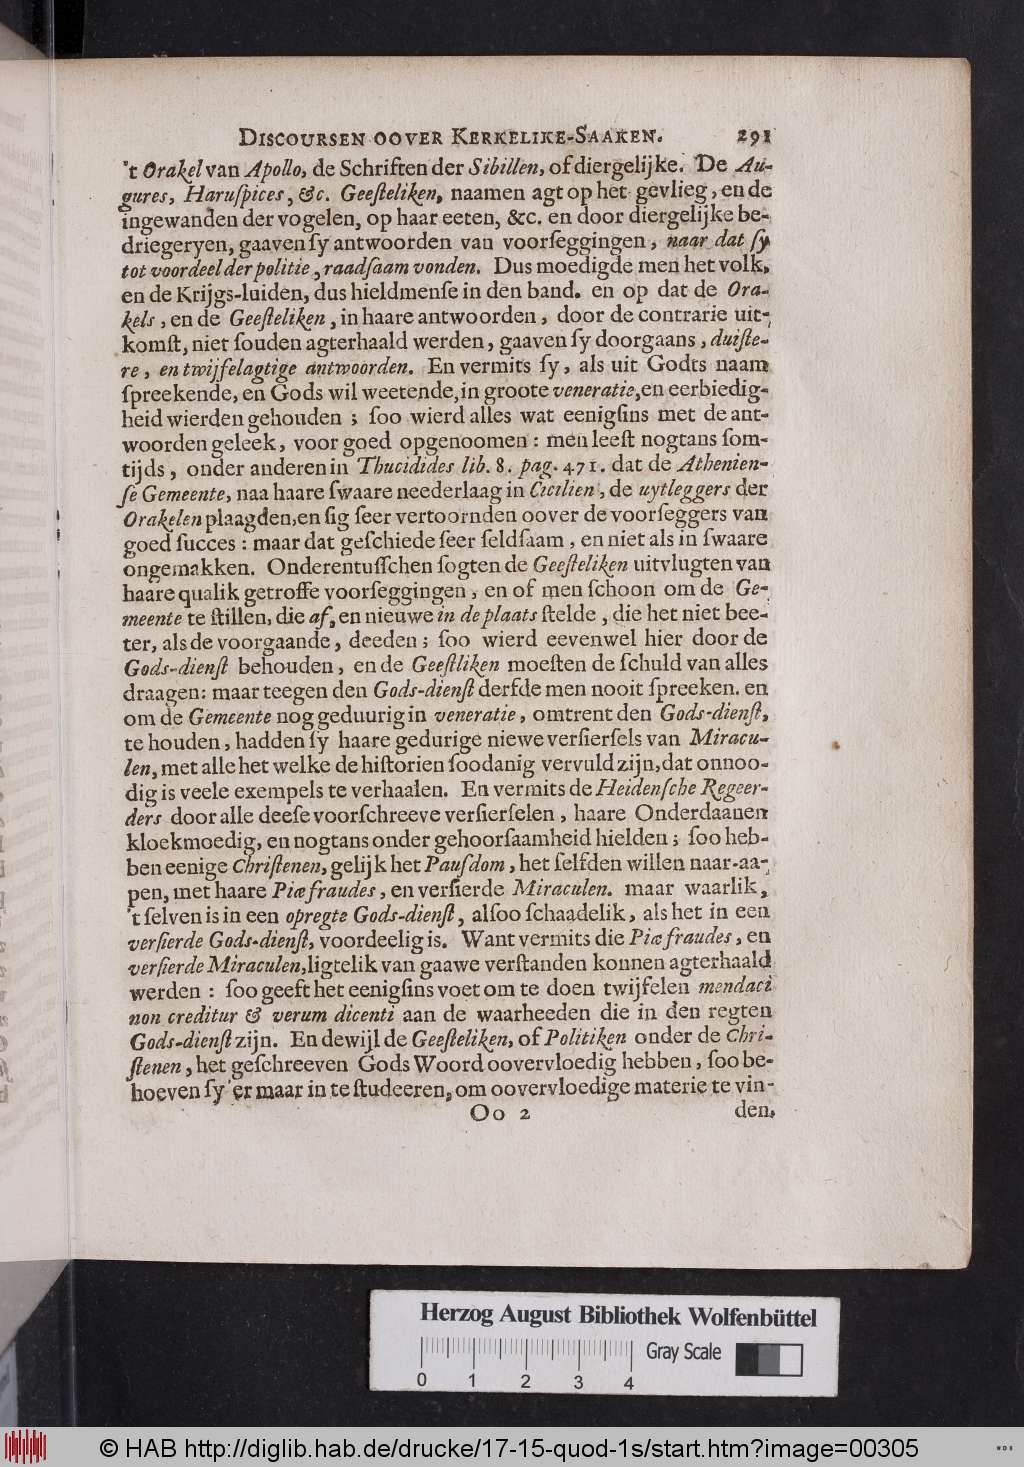 DISCOURSEN OOVER KERKELIKE-SAAKEN. 291
't Orakel van Apollo, de Schriften der Sibillen, of diergelijke. De Au-
gures, Haruſpices, &c. Geeſteliken, naamen agt op het gevlieg, en de
ingewanden der vogelen, op haar eeten, &c. en door diergelijke be-
driegeryen, gaaven ſy antwoorden van voorſeggingen, naar dat ſy
tot voordeel der politie, raadſaam vonden. Dus moedigde men het volk,
en de Krijgs-luiden, dus hieldmenſe in den band. en op dat de Ora-
kels, en de Geeſteliken, in haare antwoorden, door de contrarie uit-
komſt, niet ſouden agterhaald werden, gaaven ſy doorgaans, duiſte-
re, en twijfelagtige antwoorden. En vermits ſy, als uit Godts naam
ſpreekende, en Gods wil weetende, in groote veneratie, en eerbiedig-
heid wierden gehouden; ſoo wierd alles wat eenigſins met de ant-
woorden geleek, voor goed opgenoomen: men leeſt nogtans ſom-
tijds, onder anderen in Thucidides lib. 8. pag. 471. dat de Athenien-
ſe Gemeente, naa haare ſwaare neederlaag in Cicilien, de uytleggers der
Orakelen plaagden, en ſig ſeer vertoornden oover de voorſeggers van
goed ſucces: maar dat geſchiede ſeer ſeldſaam, en niet als in ſwaare
ongemakken. Onderentuſſchen ſogten de Geeſteliken uitvlugten van
haare qualik getroffe voorſeggingen, en of men ſchoon om de Ge-
meente te ſtillen, die af, en nieuwe in de plaats ſtelde, die het niet bee-
ter, als de voorgaande, deeden; ſoo wierd eevenwel hier door de
Gods-dienſt behouden, en de Geeſtliken moeſten de ſchuld van alles
draagen: maar teegen den Gods-dienſt derfde men nooit ſpreeken. en
om de Gemeente nog geduurig in veneratie, omtrent den Gods-dienſt,
te houden, hadden ſy haare gedurige niewe verſierſels van Miracu-
len, met alle het welke de hiſtorien ſoodanig vervuld zijn, dat onnoo-
dig is veele exempels te verhaalen. En vermits de Heidenſche Regeer-
ders door alle deeſe voorſchreeve verſierſelen, haare Onderdaanen
kloekmoedig, en nogtans onder gehoorſaamheid hielden; ſoo heb-
ben eenige Chriſtenen, gelijk het Pauſdom, het ſelfden willen naar-aa-
pen, met haare Piæ fraudes, en verſierde Miraculen. maar waarlik,
't ſelven is in een opregte Gods-dienſt, alſoo ſchaadelik, als het in een
verſierde Gods-dienſt, voordeelig is. Want vermits die Piæ fraudes, en
verſierde Miraculen, ligtelik van gaawe verſtanden konnen agterhaald
werden: ſoo geeft het eenigſins voet om te doen twijfelen mendaci
non creditur & verum dicenti aan de waarheeden die in den regten
Gods-dienſt zijn. En dewijl de Geeſteliken, of Politiken onder de Chri-
ſtenen, het geſchreeven Gods Woord oovervloedig hebben, ſoo be-
hoeven ſy 'er maar in te ſtudeeren, om oovervloedige materie te vin-
Oo 2 den,
Herzog August Bibliothek Wolfenbüttel
Gray Scale
0 1 2 3 4
© HAB http://diglib.hab.de/drucke/17-15-quod-1s/start.htm?image=00305